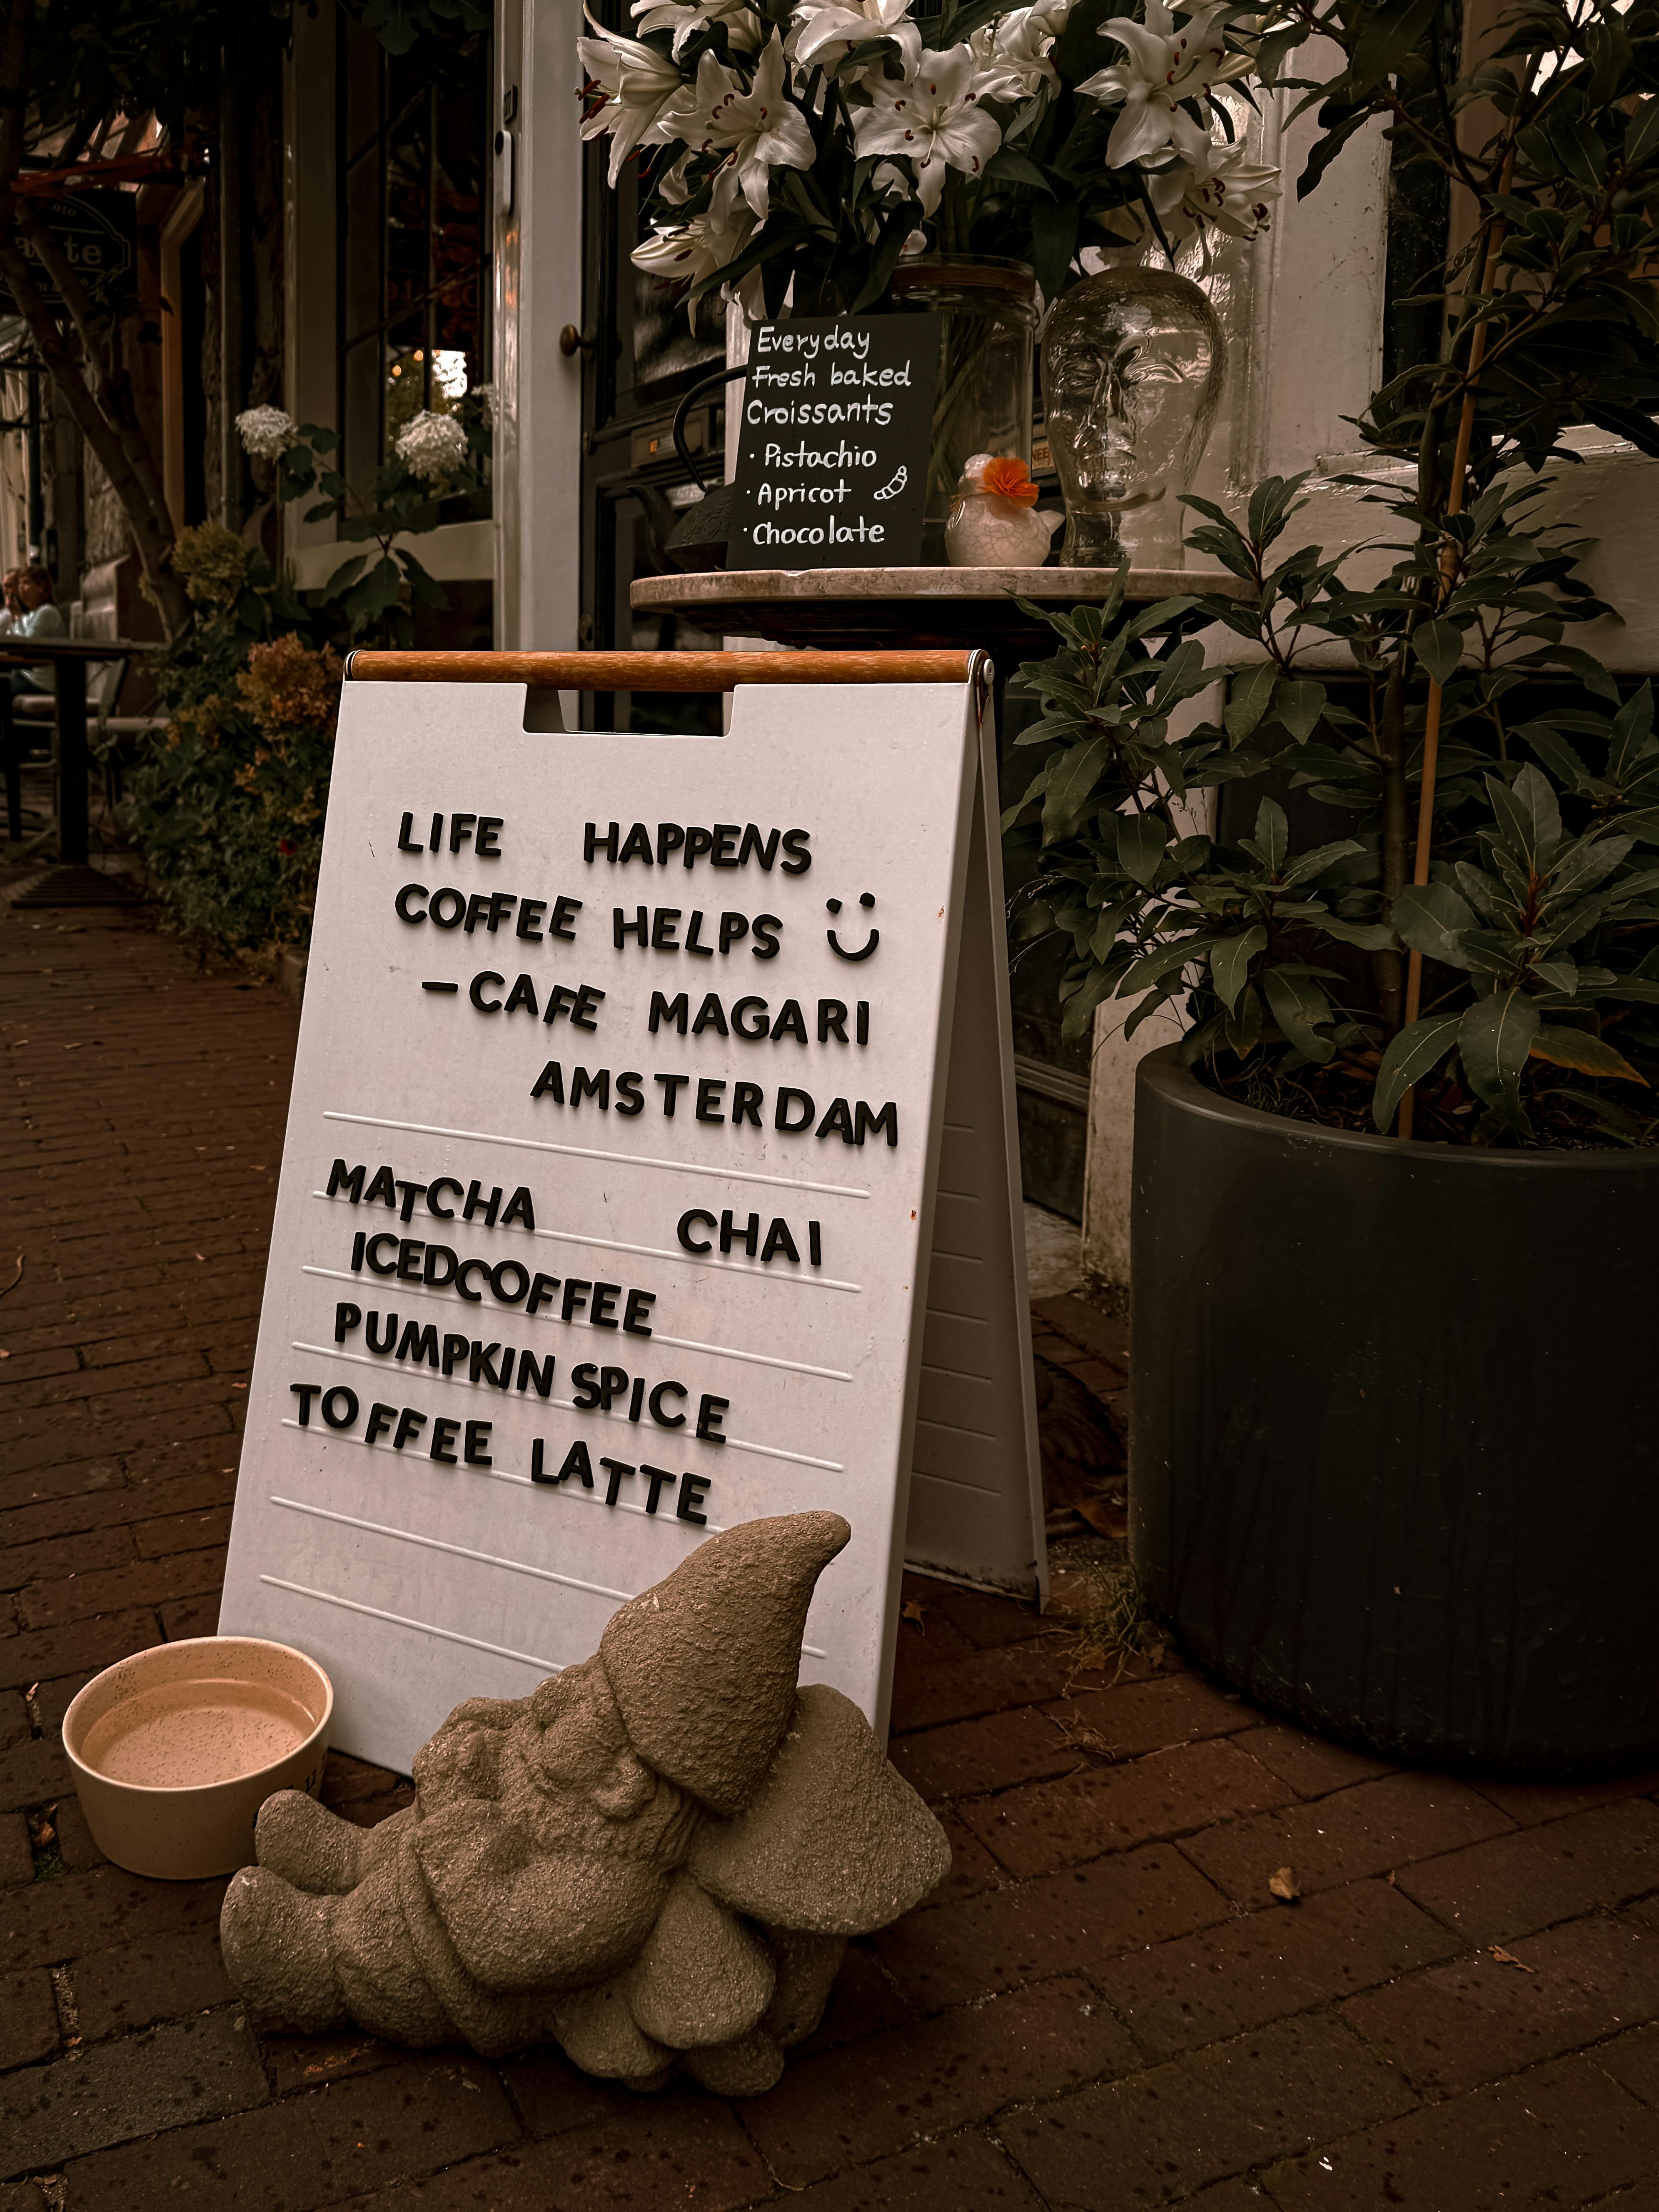 Everyday
Fresh baked
Croissants
· Pistachio
· Apricot
· Chocolate
LIFE HAPPENS
COFFEE HELPS
– CAFE MAGARI
AMSTERDAM
MATCHA CHAI
ICEDCOFFEE
PUMPKIN SPICE
TOFFEE LATTE